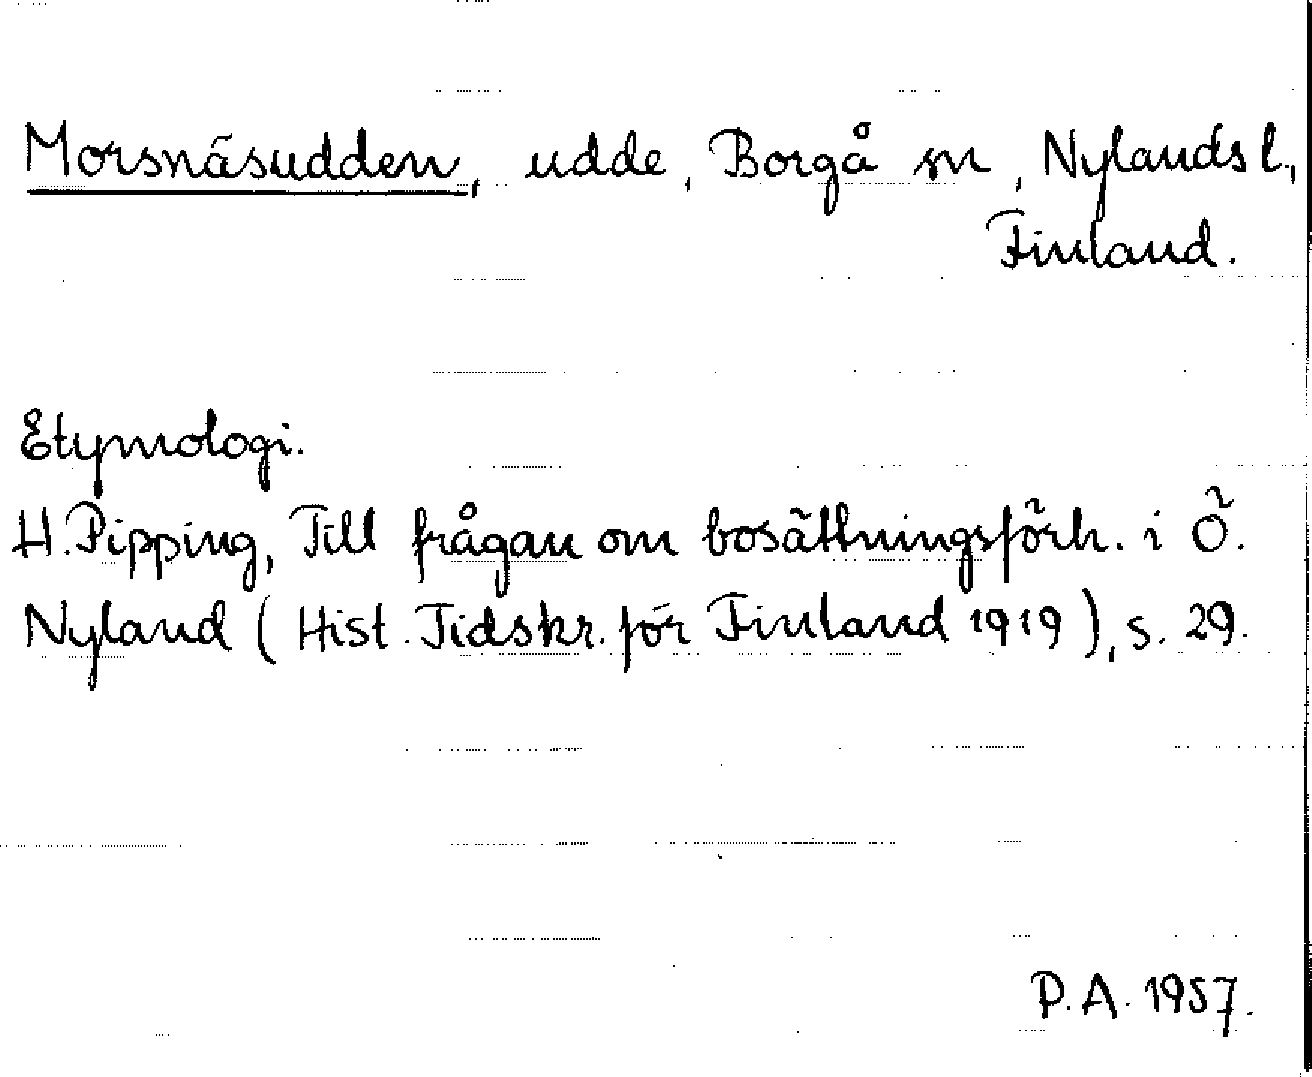 Morsnäsudden, udde, Borgå sn, Nylands l.,
Finland.
Etymologi.
H. Pipping, Till frågan om bosättningsförh. i Ö.
Nyland (Hist. Tidskr. för Finland 1919), s. 29.
P.A. 1957.